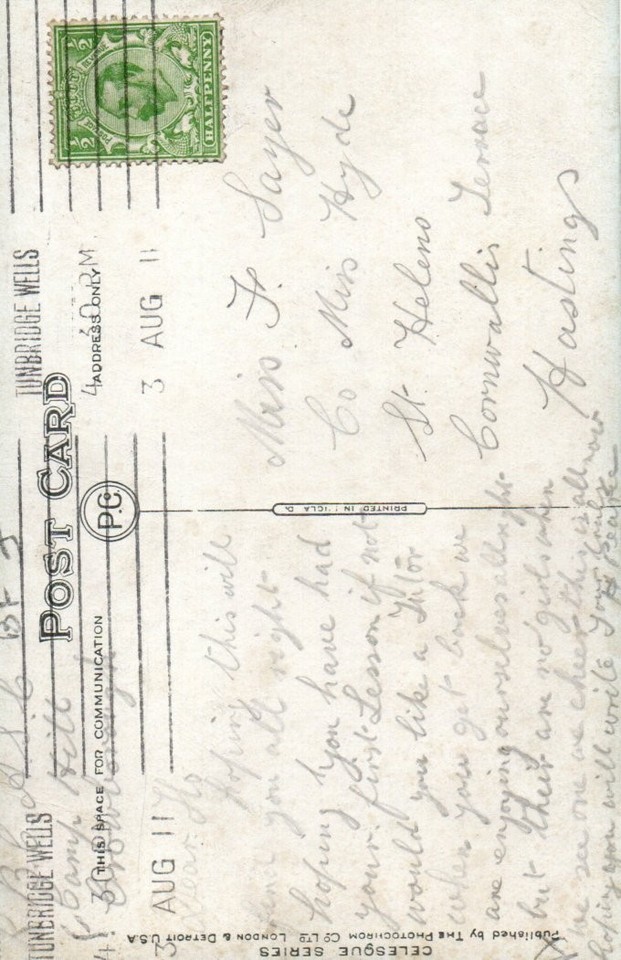 POST CARD
P.C.
THIS SPACE FOR COMMUNICATION
ADDRESS ONLY
½ HALFPENNY ½
TUNBRIDGE WELLS
4 30 PM
3 AUG 11
TUNBRIDGE WELLS
3 AUG 11
Camp Hill
Crowborough
Dear Flo
hoping this will
you all right
hoping you have had
your first Lesson if not
would you like a Tutor
when you get back we
are enjoying ourselves alright
but their are no girls when
we see one we cheer this is all now
hoping you will write Your
Miss F. Sayer
Co Miss Hyde
St. Helens
Cornwallis Terrace
Hastings
PRINTED IN ENGLAND.
CELESQUE SERIES
Published by THE PHOTOCHROM CO LTD LONDON & DETROIT U.S.A